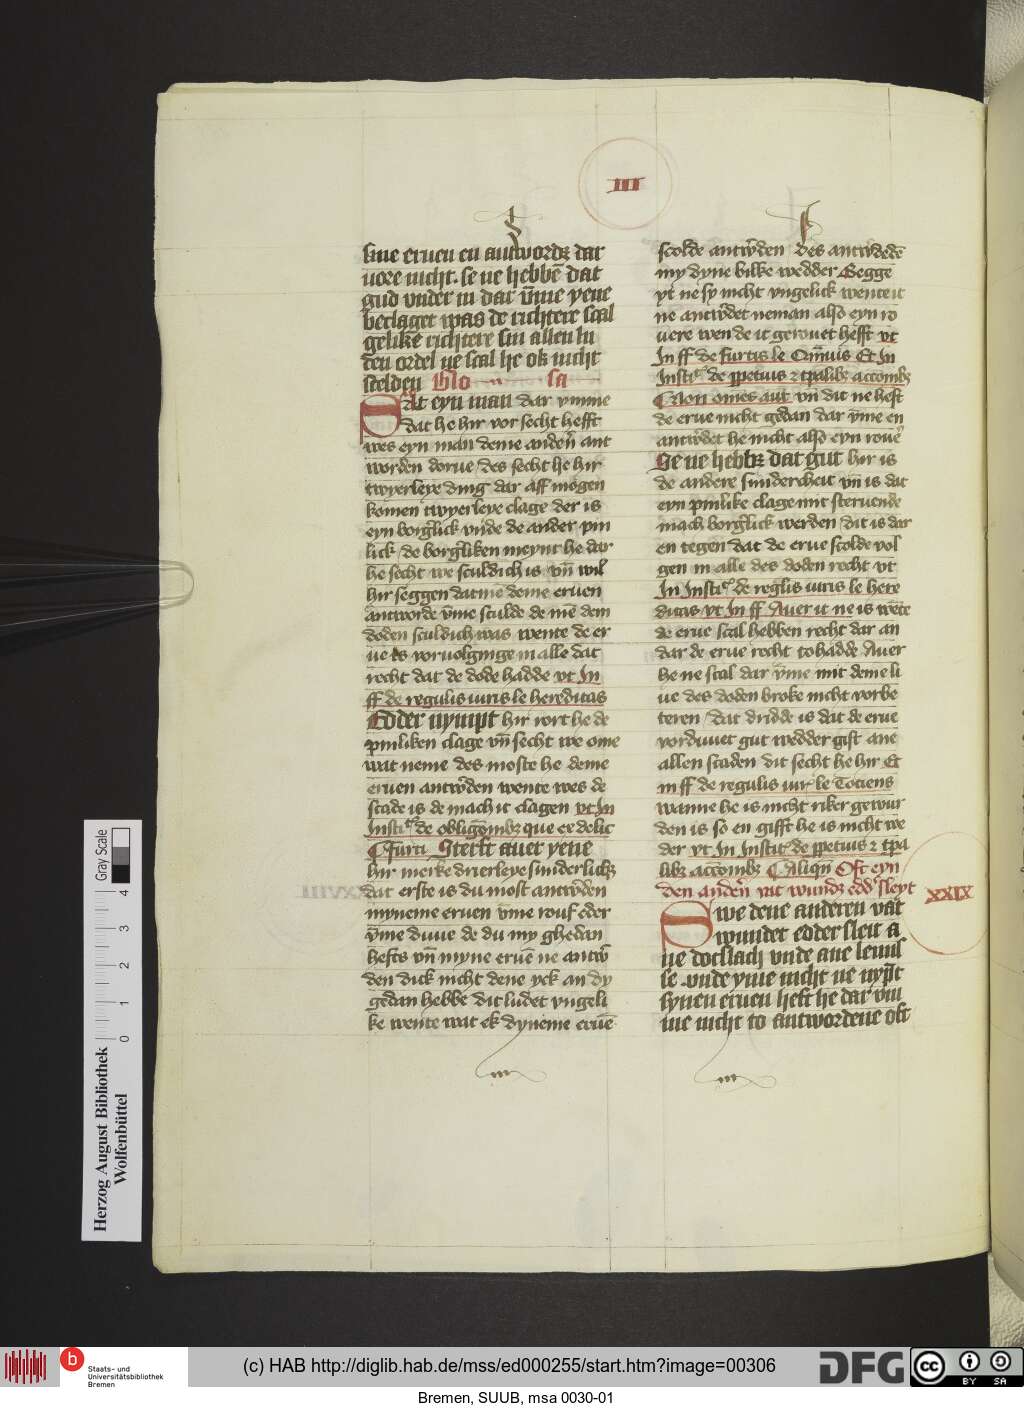 III
sine eruen en antwordꝫ dar
vore nicht. se ne hebbē dat
gud vnder in dar v̄me yene
beclaget was de richtere scal
gelikē richtere sin allen lu
den ordel ne scal he ok nicht
scelden Glo sa
Dat eyn man dar vmme
dat he hir vor secht hefft
wes eyn man deme andeň ant
worden dorue / des secht he hir
twyerleye ding dar aff mogen
komen twyerleye clage der is
eyn borgl̄ick vn̄de de ander pin
lick / de borgl̄iken meynt he dar
he secht we sculdich is vn̄ wil
hir seggen datme deme eruen
antworde v̄me sculde de mē dem
doden sculdich was wente de er
ue is voruolginge in alle dat
recht dat de dode hadde vt In
ff de regulis iuris le hereditas
Edder nympt hir rort he de
pinliken clage vn̄ secht we ome
wat neme des moste he deme
eruen antẘden wente wes de
scade is de mach it clagen vt In
Insti de obligōnibꝫ que ex delic
furti Sterft auer yene
hir merke drierleye sunderlickꝫ
dat erste is du most antẘden
myneme eruen v̄me rouf eder
v̄me duue de du my ghedan
hefts vn̄ myne eruē ne antẘ
den dick nicht dene yck an dy
gedan hebbe dit ludet vngeli
ke wente wat ek dyneme eruē
scolde antẘden des antẘdedē
my dyne bilke wedder Segge
yt ne sy nicht vngelick wente it
ne antẘdet neman alsd eyn ro
uere wen de it gerouet hefft vt
In ff de furtis le Om̄nuis Et In
Insti de ꝑpetuis ⁊ tꝑalibꝫ accōnibꝫ
Non omēs aut vn̄ dit ne heft
de erue nicht gedan dar v̄me en
antẘdet he nicht alsd eyn rouē
Se ne hebbꝫ dat gut hir is
de andere sundercheit vn̄ is dat
eyn pinlike clage mit steruende
mach borgl̄ick werden dit is dar
en tegen dat de erue scolde vol
gen in alle des doden recht vt
In Insti de reglis iuris le here
ditas vt In ff Auer it ne is wēte
de erue scal hebben recht dar an
dar de erue recht to hadde Auer
he ne scal dar v̄me mit deme li
ue des doden broke nicht vorbe
teren / Dat dridde is dat de erue
vorduuet gut wedder gift ane
allen scaden dit secht he hir Et
in ff de regulis iur le Tociens
wanne he is nicht riker gewur
den is so en gifft he is nicht we
der vt In Instit de ꝑpetuis ⁊ tꝑa
libꝫ accōnibꝫ Aliqn̄ Oft eyn
den andeň vat wundꝫ edd' sleyt
XXIX
Swe dene anderen vat
wundet edder sleit a
ne docslach vnde ane lemis
se vnde yme nicht ne nym̄t
synen eruen heft he dar vm
me nicht to antwordene oft
III
III
Herzog August Bibliothek
Wolfenbüttel
0 1 2 3 4
Gray Scale
Staats- und
Universitätsbibliothek
Bremen
(c) HAB http://diglib.hab.de/mss/ed000255/start.htm?image=00306
DFG
cc BY SA
Bremen, SUUB, msa 0030-01